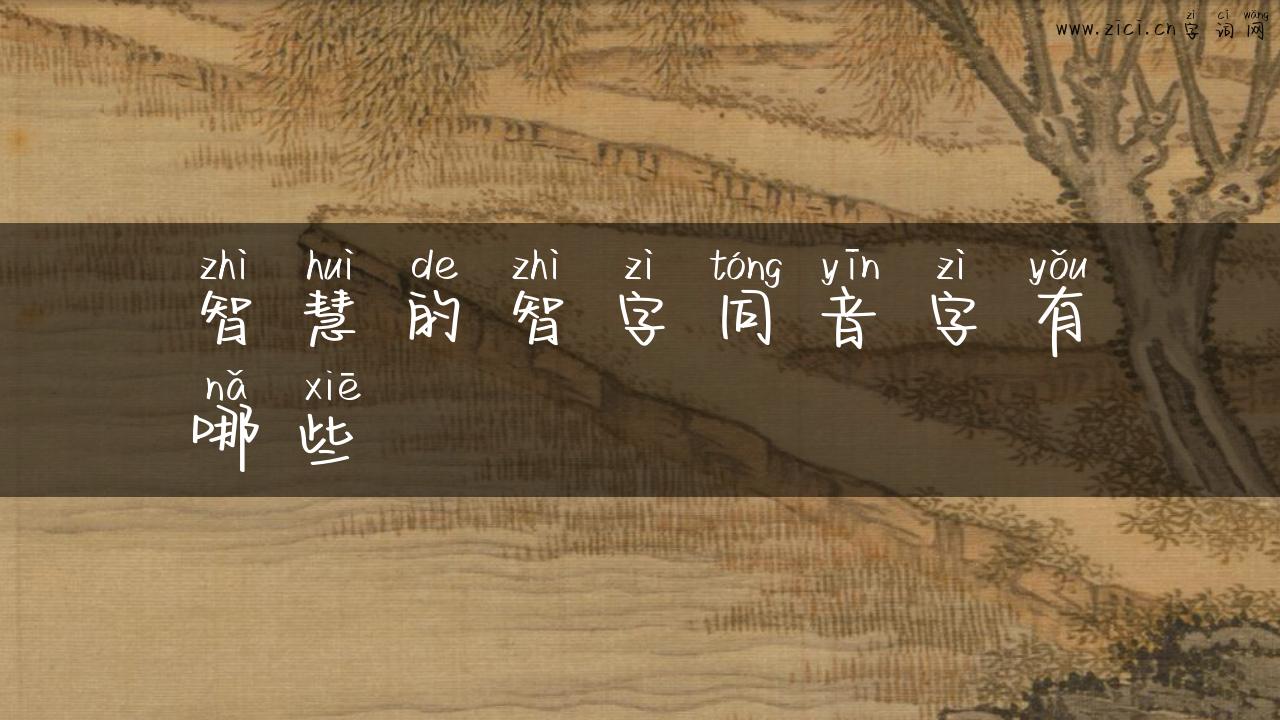 zì cí wǎng
www.zici.cn字词网
zhì huì de zhì zì tóng yīn zì yǒu
智慧的智字同音字有
nǎ xiē
哪些